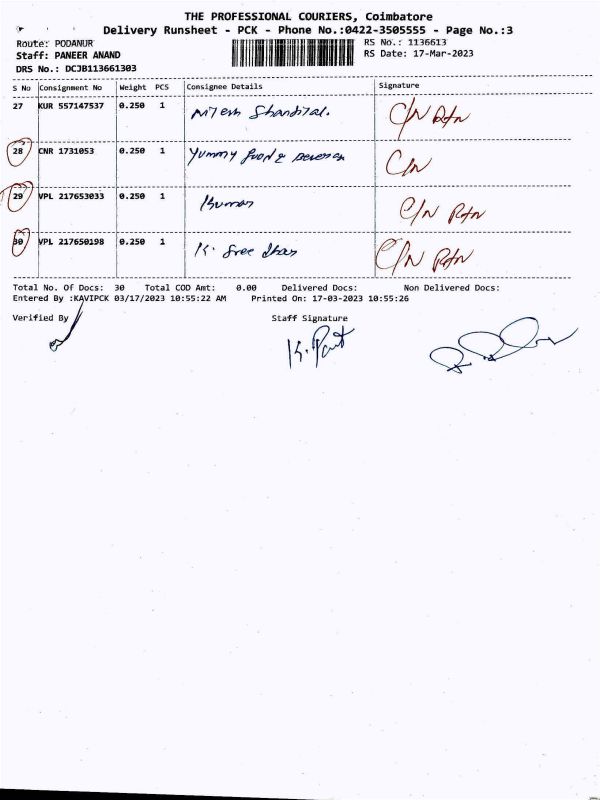 THE PROFESSIONAL COURIERS, Coimbatore
Delivery Runsheet - PCK - Phone No.:0422-3505555 - Page No.:3
Route: PODANUR RS No.: 1136613
Staff: PANEER ANAND RS Date: 17-Mar-2023
DRS No.: DCJB113661303
S No Consignment No Weight PCS Consignee Details Signature
27 KUR 557147537 0.250 1 Nitesh C/N R/N
28 CNR 1731053 0.250 1 Yummy C/N
29 VPL 217653033 0.250 1 Kumar C/N R/N
30 VPL 217650198 0.250 1 K. Sree dhar C/N R/N
Total No. Of Docs: 30 Total COD Amt: 0.00 Delivered Docs: Non Delivered Docs:
Entered By :KAVIPCK 03/17/2023 10:55:22 AM Printed On: 17-03-2023 10:55:26
Verified By Staff Signature